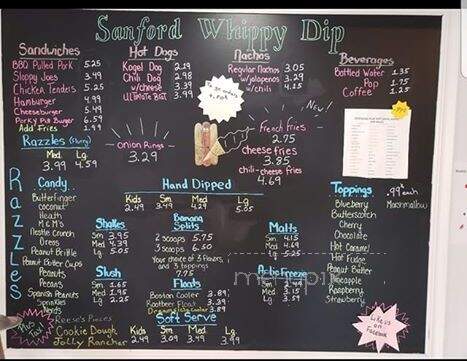 Sanford Whippy Dip
Sandwiches
BBQ Pulled Pork 5.25
Sloppy Joes 3.49
Chicken Tenders 5.25
Hamburger 4.99
Cheeseburger 5.49
Porky Pig Burger 6.59
Add Fries 1.99
Hot Dogs
Kogel Dog 2.19
Chili Dog 2.98
w/cheese 3.39
Ultimate Dog 3.99
Nachos
Regular Nachos 3.05
w/jalapenos 3.29
w/chili 4.15
Beverages
Bottled Water 1.35
Pop 1.75
Coffee 1.25
New!
French fries
2.75
cheese fries
3.85
chili-cheese fries
4.69
Onion Rings
3.29
Razzles (Flurry)
Med. Lg
3.99 4.59
Razzles
Candy
Butterfinger
Coconut
Heath
M & M's
Nestle Crunch
Oreos
Peanut Brittle
Peanut Butter Cups
Peanuts
Pecans
Spanish Peanuts
Sprinkles
Nerds
Reese's Pieces
Cookie Dough
Jolly Rancher
Hand Dipped
Kids Sm Med Lg
2.49 3.49 4.29 5.05
Shakes
Sm 3.95
Med 4.39
Lg 5.05
Slush
Sm 1.65
Med 1.95
Lg 2.25
Banana
Splits
2 scoops 5.75
3 scoops
Your choice of 3 flavors
and 3 toppings
7.75
Floats
Boston Cooler 3.89
Rootbeer Float 3.39
Dreamsicle Cooler 3.89
Soft Serve
Kids Sm Med Lg
2.49 3.09 3.49 3.99
Malts
Sm
Med 4.69
Lg 5.25
Arctic Freeze
Toppings .99 each
Blueberry Marshmallow
Butterscotch
Cherry
Chocolate
Hot Caramel
Hot Fudge
Peanut Butter
Pineapple
Raspberry
Strawberry
Like us
on Facebook